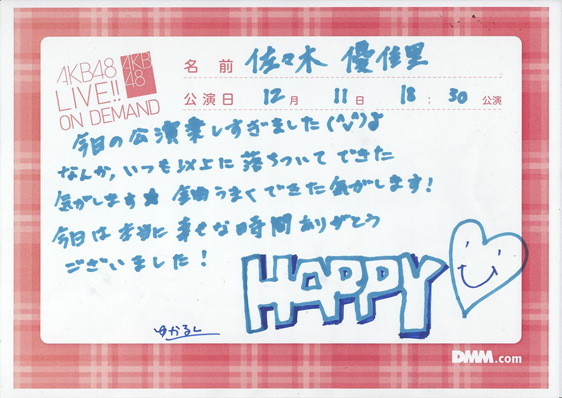 AKB48
LIVE!!
ON DEMAND
AKB
48
名前 佐々木 優佳里
公演日 12月 11日 18:30 公演
今日の公演楽しすぎました(^^)♪
なんか、いつも以上に落ちついてできた
気がします★ 全曲うまくできた気がします!
今日は本当に幸せな時間ありがとう
ございました!
HAPPY
ゆかるん
DMM.com